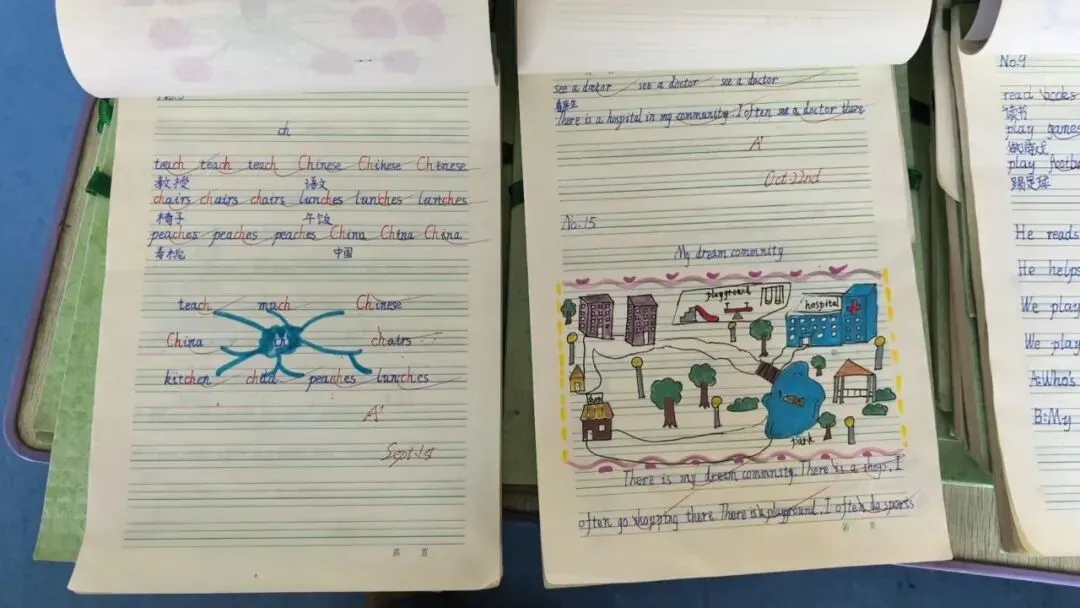 ch
teach teach teach Chinese Chinese Chinese
教授 语文
chairs chairs chairs lunches lunches lunches
椅子 午饭
peaches peaches peaches China China China
中国
teach much Chinese
China ch chairs
kitchen child peaches lunches
A+
第 页
see a doctor see a doctor see a doctor
看医生
There is a hospital in my community. I often see a doctor there
A+
Oct.22nd
No.15
My dream community
playground
hospital
park
There is my dream community. There is a shop, I
often go shopping there. There is a playground, I often do sports
第 页
No.9
read books
读书
play games
做游戏
play footba
踢足球
He reads
He helps
We play
We play
A:Who's
B:My